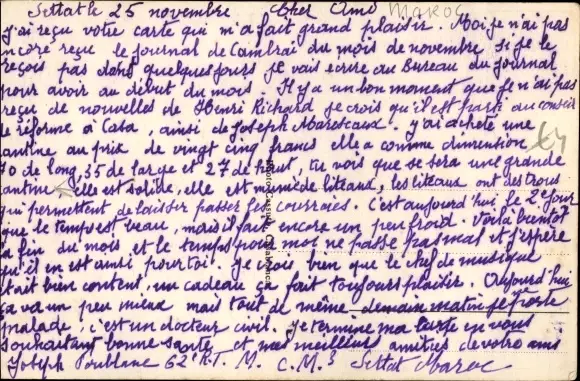 Settat le 25 novembre Cher Ami MAROC
J'ai reçu votre carte qui m'a fait grand plaisir. Moi je n'ai pas
encore reçu le journal de Cambrai du mois de novembre si je le
reçois pas dans quelques jours je vais ecrire au Bureau du journal
pour avoir au début du mois. Il y a un bon moment que je n'ai pas
reçu de nouvelles de Henri Richard je crois qu'il est parti au conseil
de réforme à Casa, ainsi de Joseph Marescaux. j'ai acheté une
cantine au prix de vingt cinq francs elle a comme dimention
70 de long, 35 de large et 27 de haut, tu vois que se sera une grande
cantine elle est solide, elle est muni de liteaux, les liteaux ont des trous
qui permettent de laisser passer les courroies. C'est aujourd'hui le 2e jour
que le temps est beau, mais il fait encore un peu froid. Voilà bientôt
la fin du mois et le temps pour moi ne passe pas mal et j'espère
qu'il en est aussi pour toi. Je crois bien que le chef de musique
était bien content, un cadeau ça fait toujours plaisir. Aujourd'hui
ça va un peu mieux mais tout de même demain matin je porte
malade, c'est un docteur civil. Je termine ma carte en vous
souhaitant bonne santé et mes meilleurs amitiés de votre ami
Joseph Poublanc 62e R.T.M. C.M.3 Settat Maroc